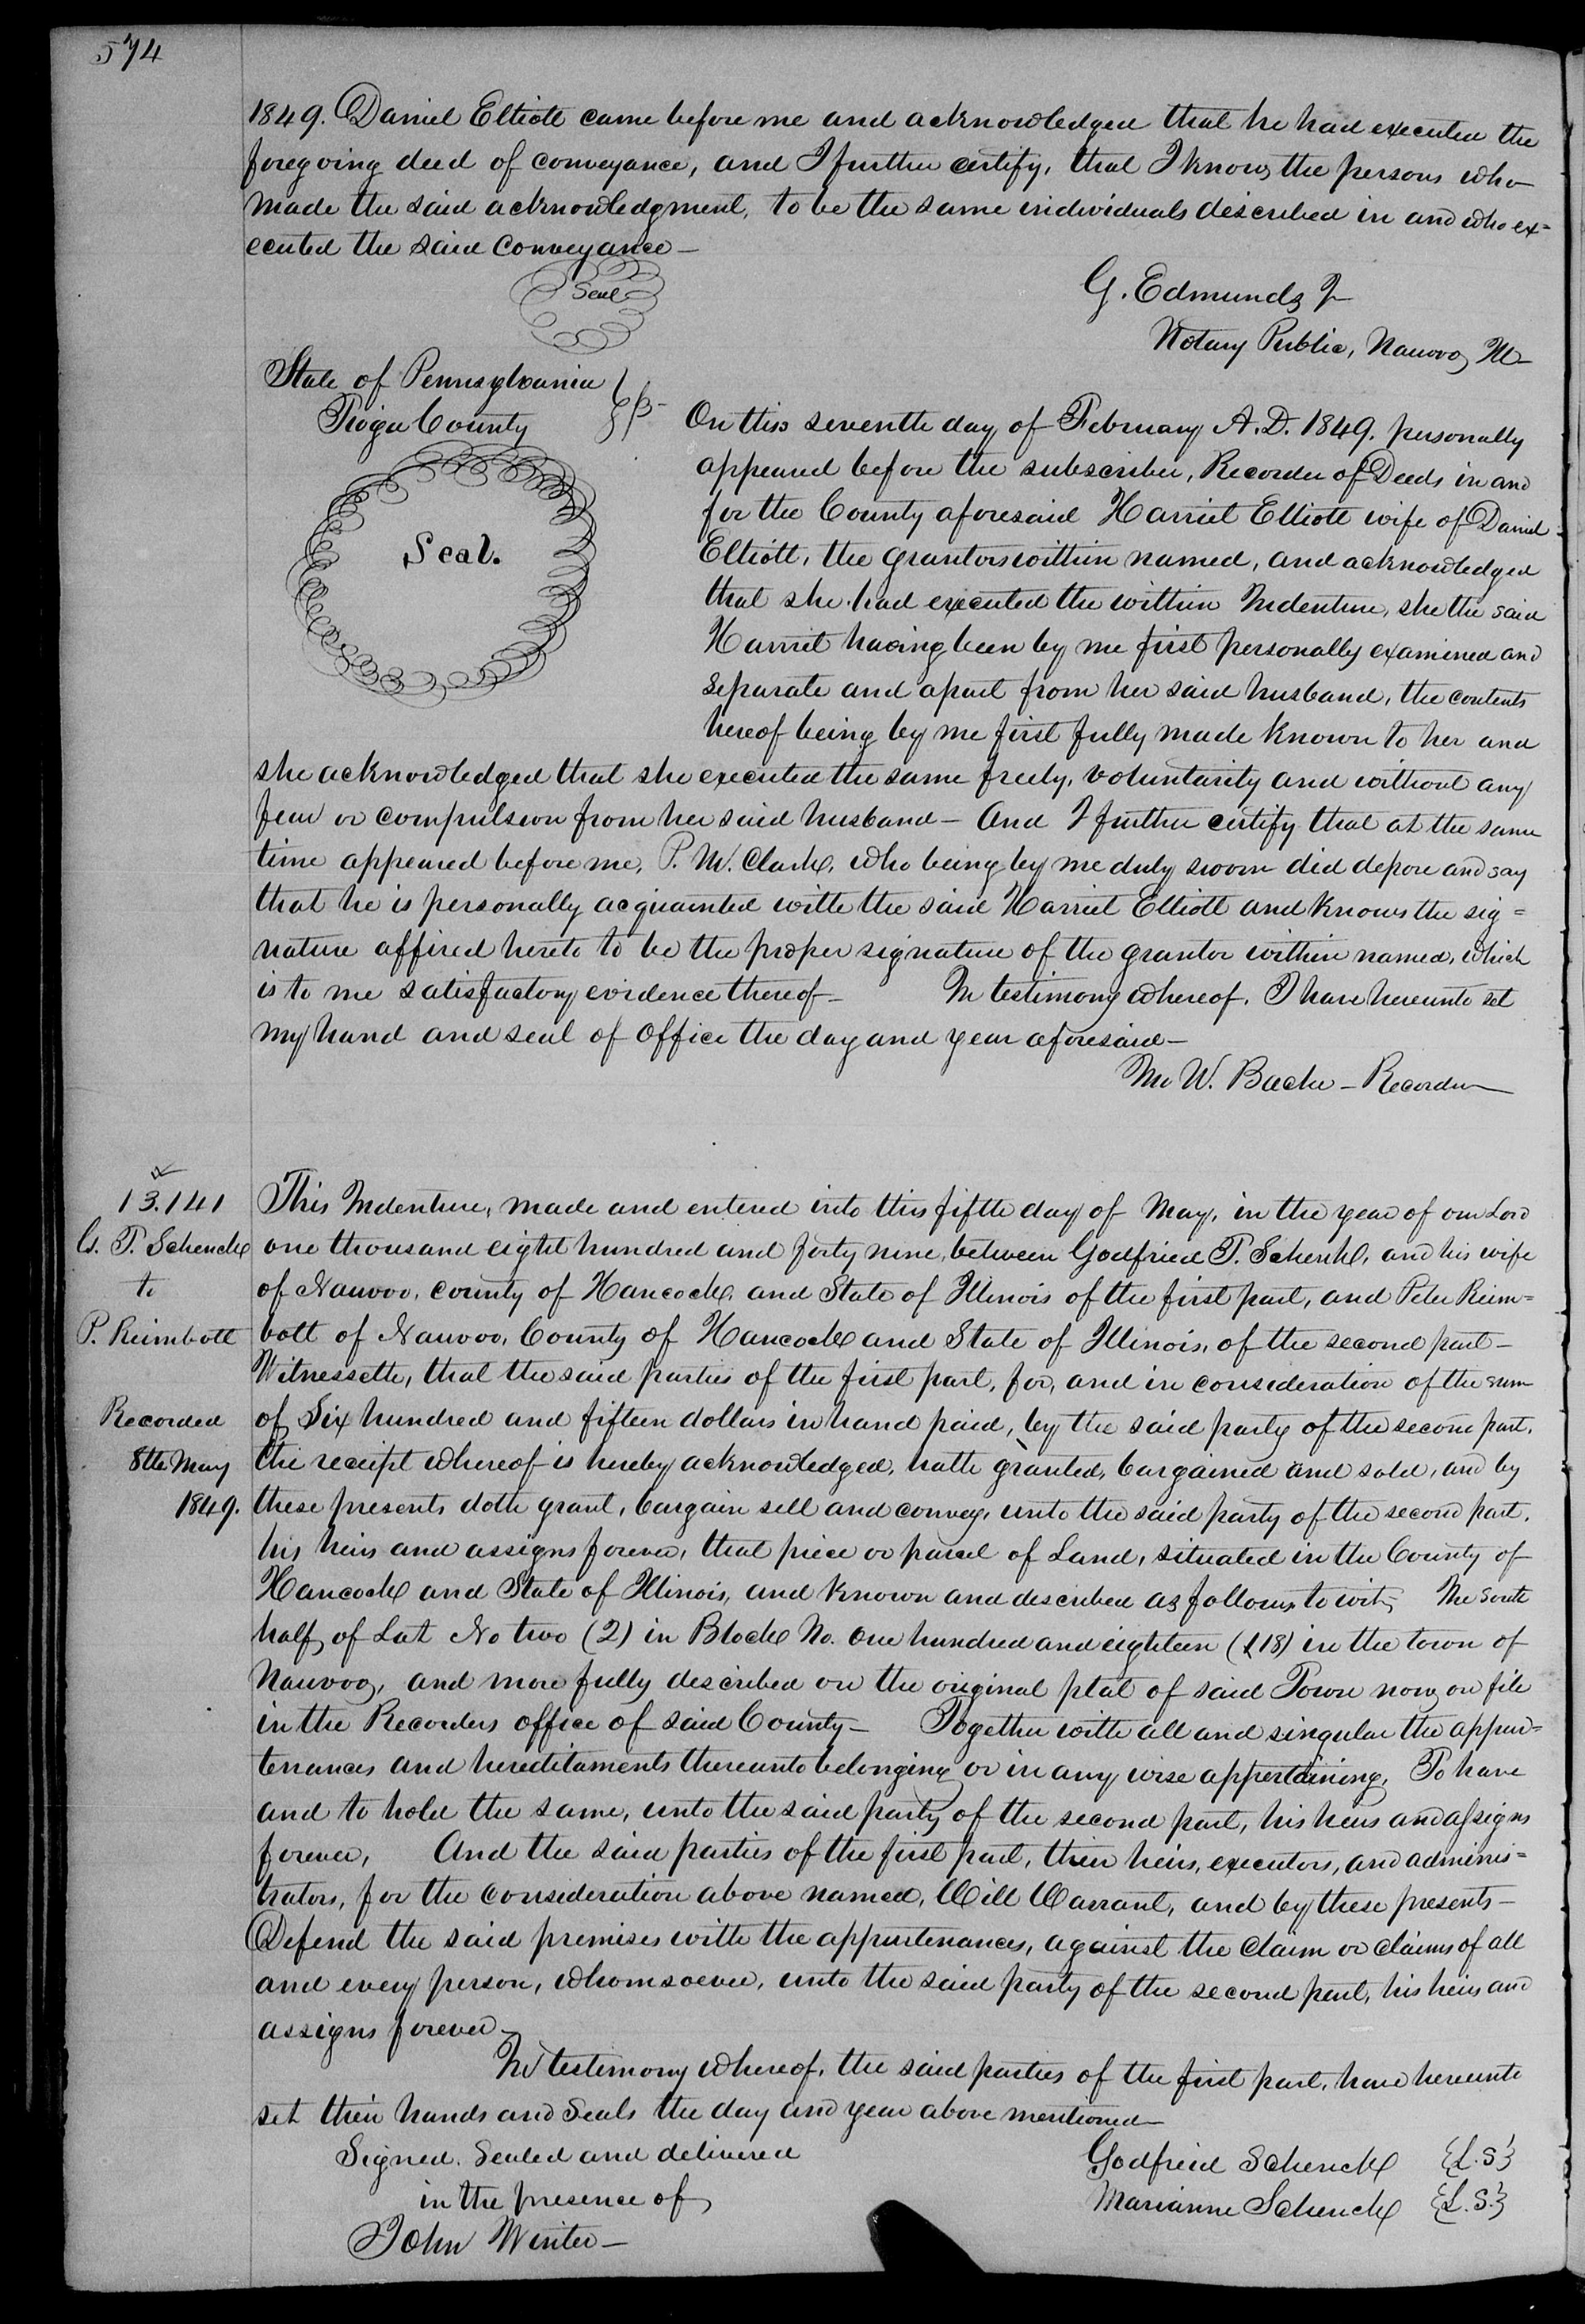 574
1849. Daniel Elliott came before me and acknowledged that he had executed the
foregoing deed of conveyance, and I further certify, that I know the persons who
made the said acknowledgment, to be the same individuals described in and who ex=
ecuted the said Conveyance—
Seal
G. Edmunds Jr
Notary Public, Nauvoo, Ill
State of Pennsylvania
Tioga County } ss
Seal.
On this seventh day of February A.D. 1849. personally
appeared before the subscriber, Recorder of Deeds in and
for the County aforesaid Harriet Elliott wife of Daniel
Elliott, the grantors within named, and acknowledged
that she had executed the within Indenture, she the said
Harriet having been by me first personally examined and
separate and apart from her said husband, the contents
hereof being by me first fully made known to her and
she acknowledged that she executed the same freely, voluntarily and without any
fear or compulsion from her said husband— And I further certify that at the same
time appeared before me, P. W. Clark, who being by me duly sworn did depose and say
that he is personally acquainted with the said Harriet Elliott and knows the sig=
nature affixed hereto to be the proper signature of the grantor within named, which
is to me satisfactory evidence thereof— In testimony whereof, I have hereunto set
my hand and seal of office the day and year aforesaid—
Jno W. Bache — Recorder
13.141
G. T. Schenck
to
P. Reimbott
Recorded
8th May
1849.
This Indenture, made and entered into this fifth day of May, in the year of our Lord
one thousand eight hundred and forty nine, between Godfried T. Schenk, and his wife
of Nauvoo, county of Hancock, and State of Illinois of the first part, and Peter Reim=
bott of Nauvoo, County of Hancock and State of Illinois, of the second part—
Witnesseth, that the said parties of the first part, for, and in consideration of the sum
of Six hundred and fifteen dollars in hand paid, by the said party of the second part,
the receipt whereof is hereby acknowledged, hath granted, bargained and sold, and by
these presents doth grant, bargain sell and convey, unto the said party of the second part,
his heirs and assigns forever, that piece or parcel of Land, situated in the County of
Hancock and State of Illinois, and known and described as follows, to wit, The South
half of Lot No two (2) in Block No. One hundred and eighteen (118) in the town of
Nauvoo, and more fully described on the original plat of said Town now on file
in the Recorders office of said County— Together with all and singular the appur=
tenances and hereditaments thereunto belonging or in any wise appertaining, To have
and to hold the same, unto the said party of the second part, his heirs and assigns
forever, And the said parties of the first part, their heirs, executors, and adminis=
trators, for the consideration above named, Will Warrant, and by these presents—
Defend the said premises with the appurtenances, against the claim or claims of all
and every person, whomsoever, unto the said party of the second part, his heirs and
assigns forever—
In testimony whereof, the said parties of the first part, have hereunto
set their hands and Seals the day and year above mentioned—
Signed. Sealed and delivered
in the presence of
John Winter—
Godfried Schenck {L.S.}
Marianne Schenck {L.S.}